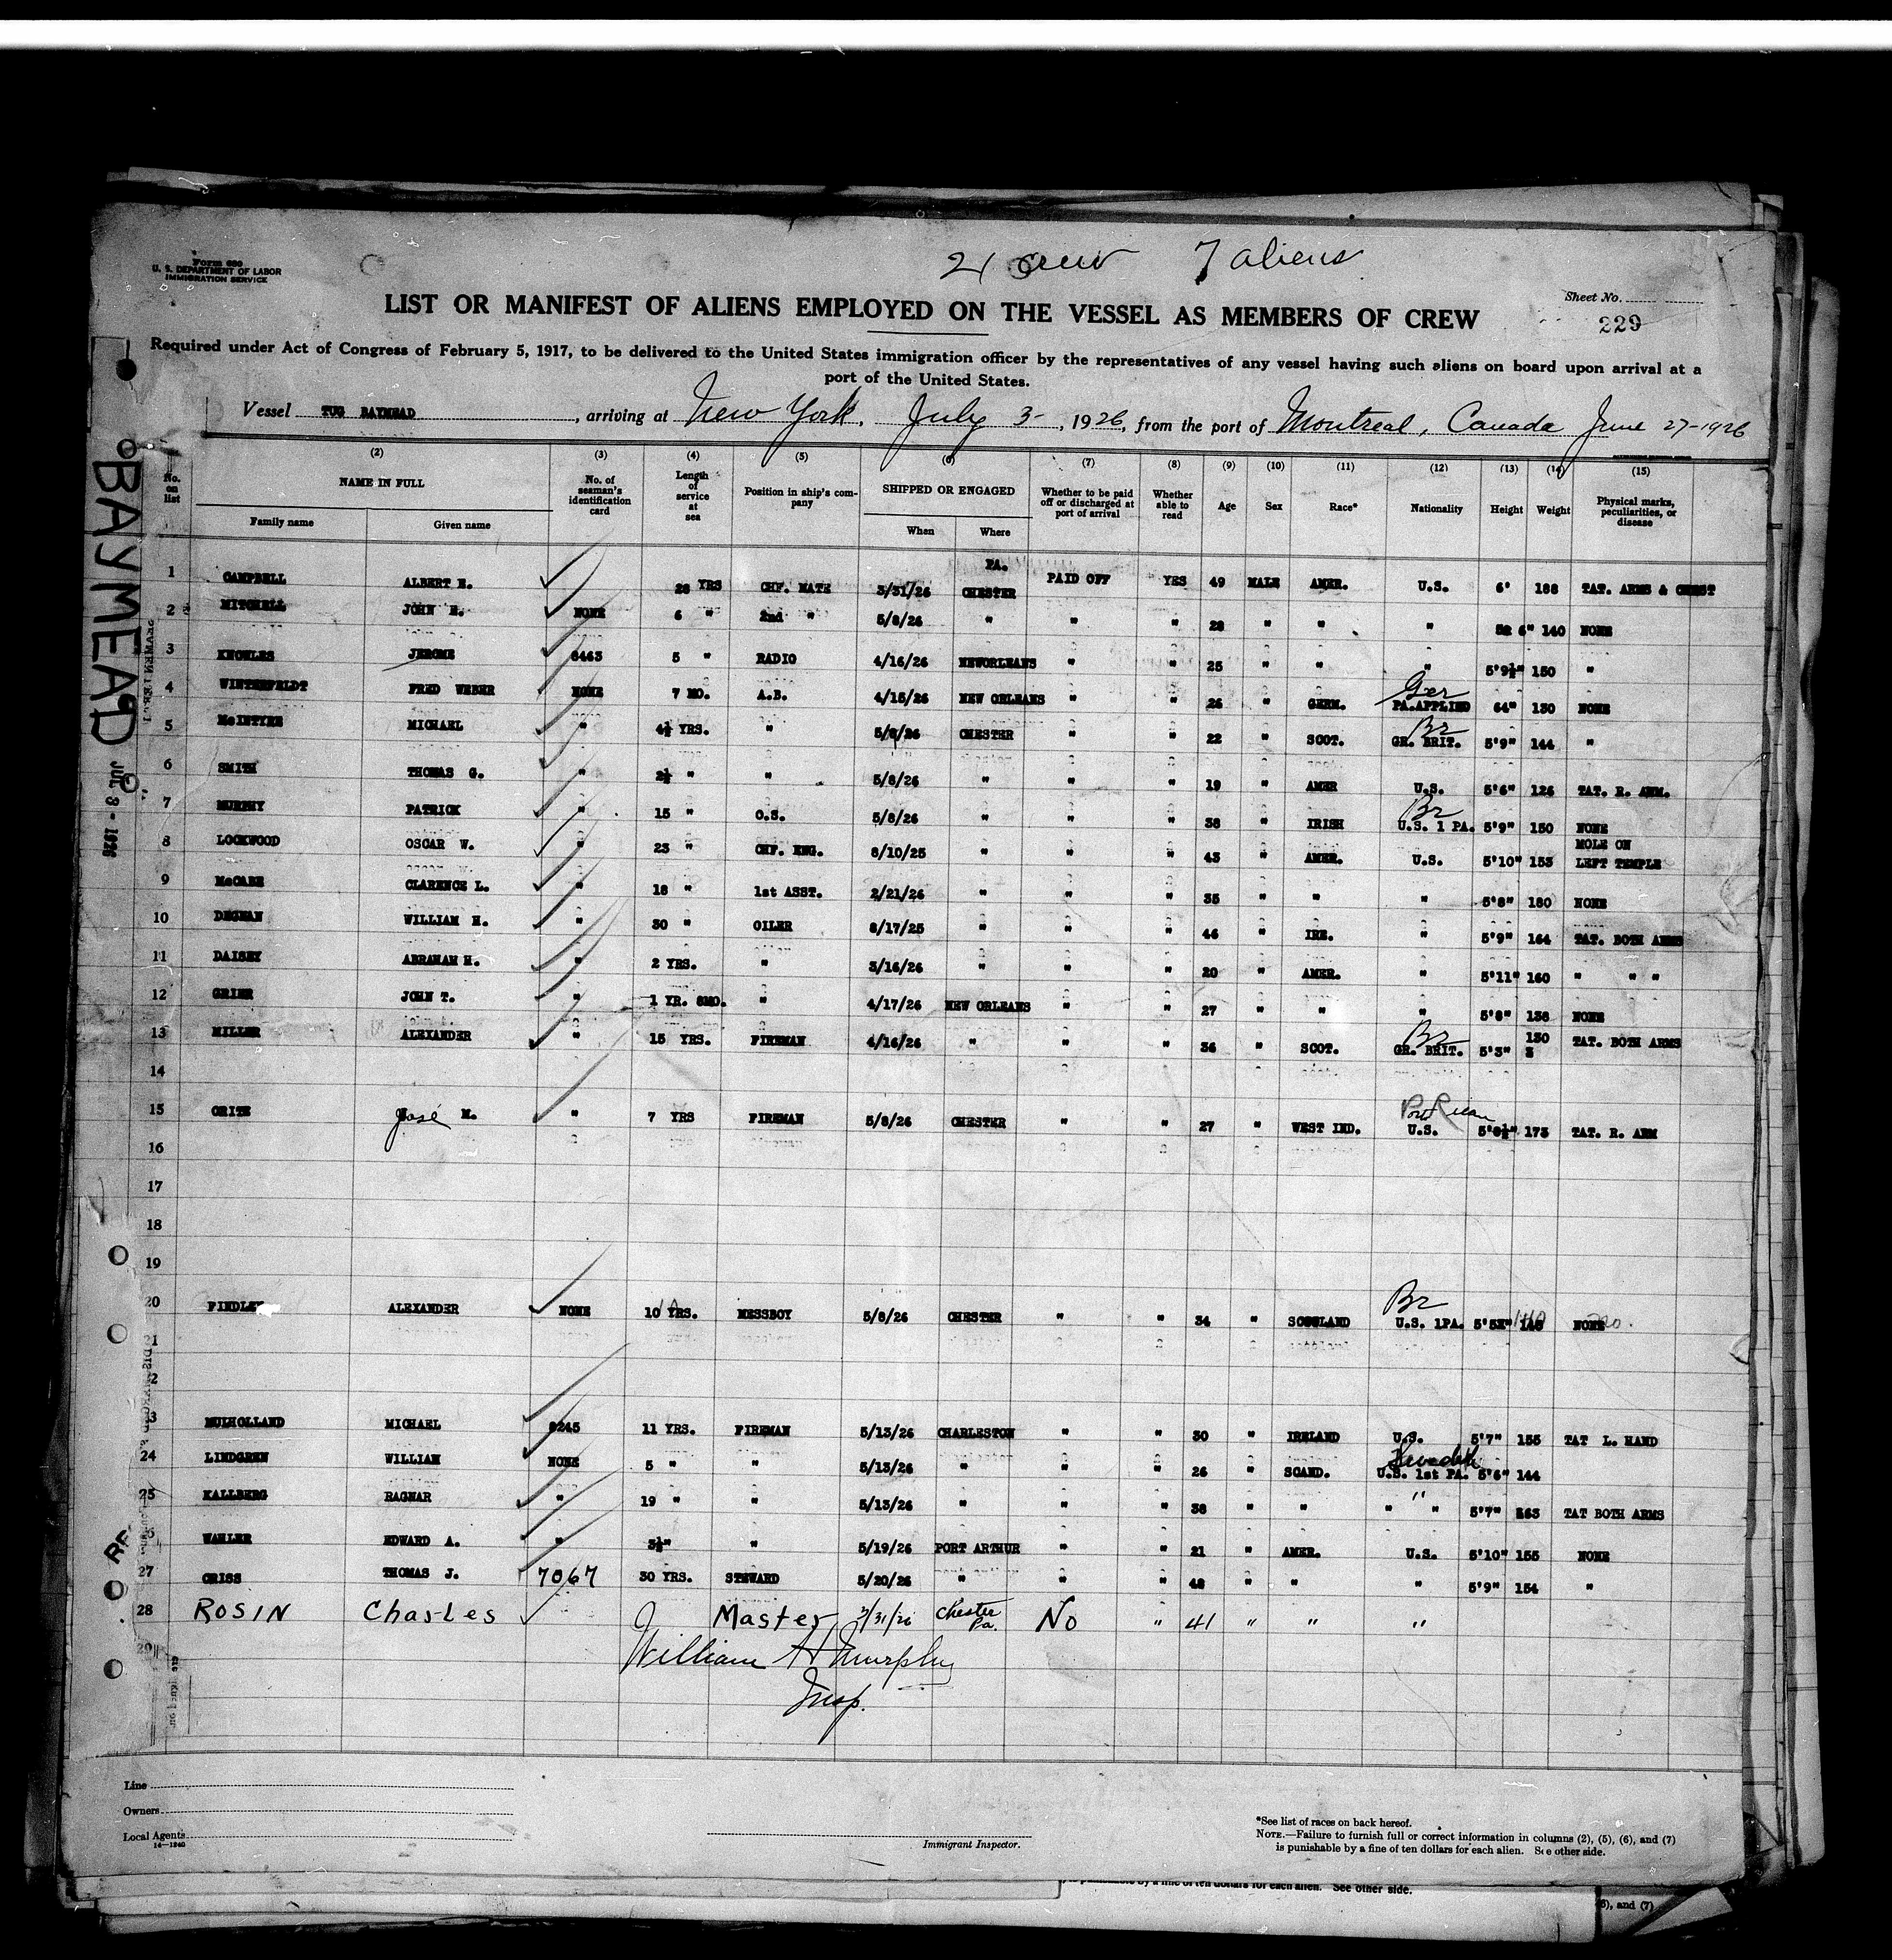 21 crew 7 aliens
Form 680
U. S. DEPARTMENT OF LABOR
IMMIGRATION SERVICE
Sheet No.
229
LIST OR MANIFEST OF ALIENS EMPLOYED ON THE VESSEL AS MEMBERS OF CREW
Required under Act of Congress of February 5, 1917, to be delivered to the United States immigration officer by the representatives of any vessel having such aliens on board upon arrival at a
port of the United States.
Vessel TUG BAYMEAD, arriving at New York, July 3-, 1926, from the port of Montreal, Canada June 27-1926
BAYMEAD JUL 3 - 1926
(2) (3) (4) (5) (6) (7) (8) (9) (10) (11) (12) (13) (14) (15)
No. on list NAME IN FULL Family name Given name No. of seaman's identification card Length of service at sea Position in ship's company SHIPPED OR ENGAGED When Where Whether to be paid off or discharged at port of arrival Whether able to read Age Sex Race* Nationality Height Weight Physical marks, peculiarities, or disease
1 CAMPBELL ALBERT E. 28 YRS CHF. MATE 3/31/26 PA. CHESTER PAID OFF YES 49 MALE AMER. U.S. 6' 188 TAT. ARMS & CHEST
2 MITCHELL JOHN H. NONE 6 " 2nd " 5/8/26 " " " 28 " " " 6" 140 NONE
3 KNOWLES JEROME 8463 5 " RADIO 4/16/26 NEWORLEANS " " 25 " " " 5'9½" 150 "
4 WINTERFELDT FRED WEBER NONE 7 MO. A.B. 4/15/26 NEW ORLEANS " " 26 " GERM. Ger PA.APPLIED 64" 130 NONE
5 McINTYRE MICHAEL " 4½ YRS. " 5/8/26 CHESTER " " 22 " SCOT. Br GR. BRIT. 5'9" 144 "
6 SMITH THOMAS G. " 2½ " " 5/8/26 " " " 19 " AMER U.S. 5'6" 126 TAT. R. ARM.
7 MURPHY PATRICK " 15 " O.S. 5/8/26 " " " 38 " IRISH Br U.S. 1 PA. 5'9" 150 NONE
8 LOCKWOOD OSCAR W. " 23 " CHF. ENG. 8/10/25 " " " 43 " AMER. U.S. 5'10" 153 MOLE ON LEFT TEMPLE
9 McCABE CLARENCE L. " 18 " 1st ASST. 2/21/26 " " " 35 " " " 5'8" 180 NONE
10 DEGNAN WILLIAM H. " 30 " OILER 8/17/25 " " " 46 " IRE. " 5'9" 164 TAT. BOTH ARMS
11 DAISEY ABRAHAM H. " 2 YRS. " 3/16/26 " " " 20 " AMER. " 5'11" 160 " " "
12 GRIER JOHN T. " 1 YR. 8MO. " 4/17/26 NEW ORLEANS " " 27 " " " 5'8" 138 NONE
13 MILLER ALEXANDER " 15 YRS. FIREMAN 4/16/26 " " " 36 " SCOT. Br GR. BRIT. 5'3" 130 TAT. BOTH ARMS
14
15 ORITZ José M. " 7 YRS FIREMAN 5/8/26 CHESTER " " 27 " WEST IND. Porto Rican U.S. 5'8½" 173 TAT. R. ARM
16
17
18
19
20 FINDLEY ALEXANDER NONE 10 YRS. MESSBOY 5/8/26 CHESTER " " 34 " SCOTLAND Br U.S. 1PA. 5'5" 140 NONE
21
22
23 MULHOLLAND MICHAEL 8245 11 YRS. FIREMAN 5/13/26 CHARLESTON " " 30 " IRELAND U.S. 5'7" 155 TAT L. HAND
24 LINDGREN WILLIAM NONE 5 " " 5/13/26 " " " 26 " SCAND. Swedish U.S. 1st PA. 5'6" 144
25 KALLBERG RAGNAR " 19 " " 5/13/26 " " " 38 " " " " 5'7" 163 TAT BOTH ARMS
26 WAHLER EDWARD A. " 3½" " 5/19/26 PORT ARTHUR " " 21 " AMER. U.S. 5'10" 155 NONE
27 CRISS THOMAS J. 7067 30 YRS. STEWARD 5/20/26 " " " 48 " " " 5'9" 154 "
28 ROSIN Charles Master 3/31/26 Chester Pa. No " 41 " " "
29
William H Murphy
Insp.
Line
Owners
Local Agents
14—1240
Immigrant Inspector.
*See list of races on back hereof.
NOTE.—Failure to furnish full or correct information in columns (2), (5), (6), and (7)
is punishable by a fine of ten dollars for each alien. See other side.
See other side.
and (7)